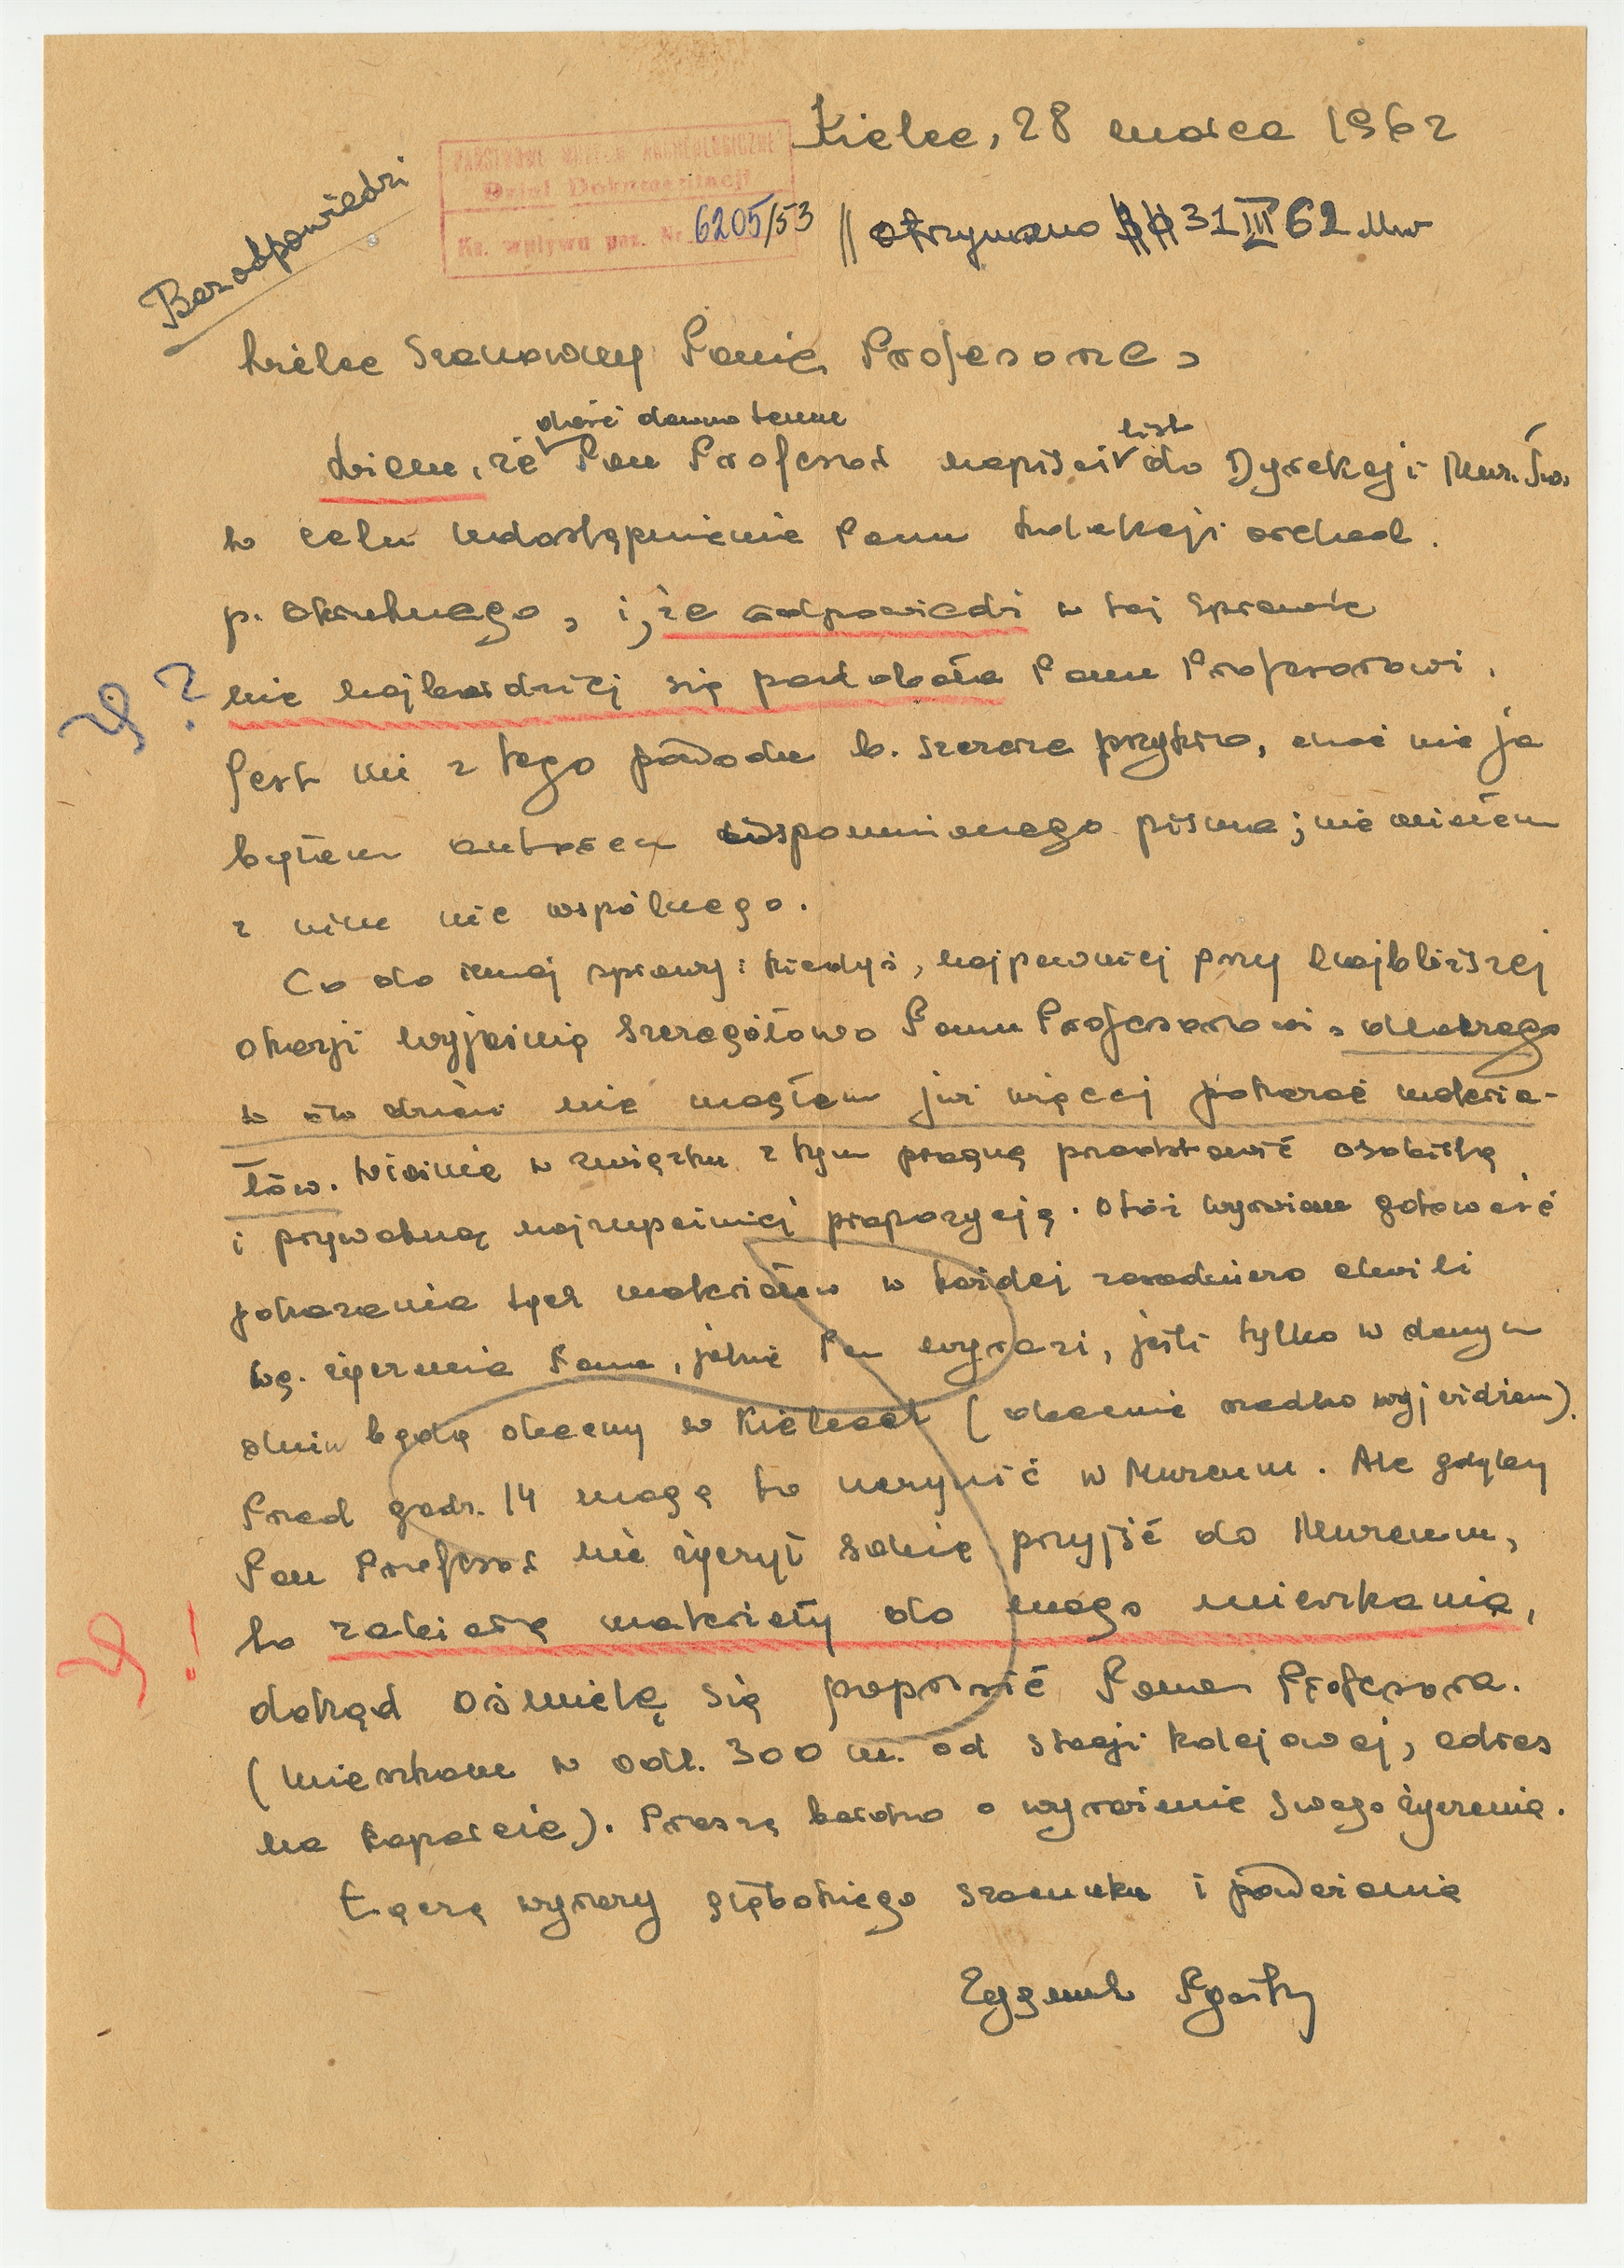 Kielce, 28 marca 1962
PAŃSTWOWE MUZEUM ARCHEOLOGICZNE
Dział Dokumentacji
Ks. wpływu poz. Nr. 6205/53
|| otrzymano 31 III 62 MW
Bez odpowiedzi
Wielce Szanowny Panie Profesorze,
dość dawno temu
list
Wiem, że Pan Profesor napisał do Dyrekcji Muz. Św.
w celu udostępnienia Panu kolekcji archeol.
p. Okrutnego, i, że odpowiedź w tej sprawie
?
nie najbardziej się podobała Panu Profesorowi.
Jest mi z tego powodu b. szczerze przykro, choć nie ja
byłem autorem wspomnianego pisma; nie miałem
z nim nic wspólnego.
Co do innej sprawy: kiedyś, najpewniej przy najbliższej
okazji wyjaśnię szczegółowo Panu Profesorowi, dlaczego
w ów dzień nie mogłem już więcej pokazać materia-
łów. Właśnie w związku z tym pragnę przedstawić osobistą
i prywatną najzupełniej propozycję. Otóż wyrażam gotowość
pokazania tych materiałów w każdej zasadniczo chwili
wg. życzenia Pana, jakie Pan wyrazi, jeśli tylko w danym
dniu będę obecny w Kielcach (obecnie rzadko wyjeżdżam).
Przed godz. 14 mogę to uczynić w Muzeum. Ale gdyby
Pan Profesor nie życzył sobie przyjść do Muzeum,
!
to zabiorę materiały do mego mieszkania,
dokąd ośmielę się poprosić Pana Profesora.
(mieszkam w odl. 300 m. od stacji kolejowej, adres
na kopercie). Proszę bardzo o wyrażenie swego życzenia.
Łączę wyrazy głębokiego szacunku i poważania
Zygmunt Pyzik